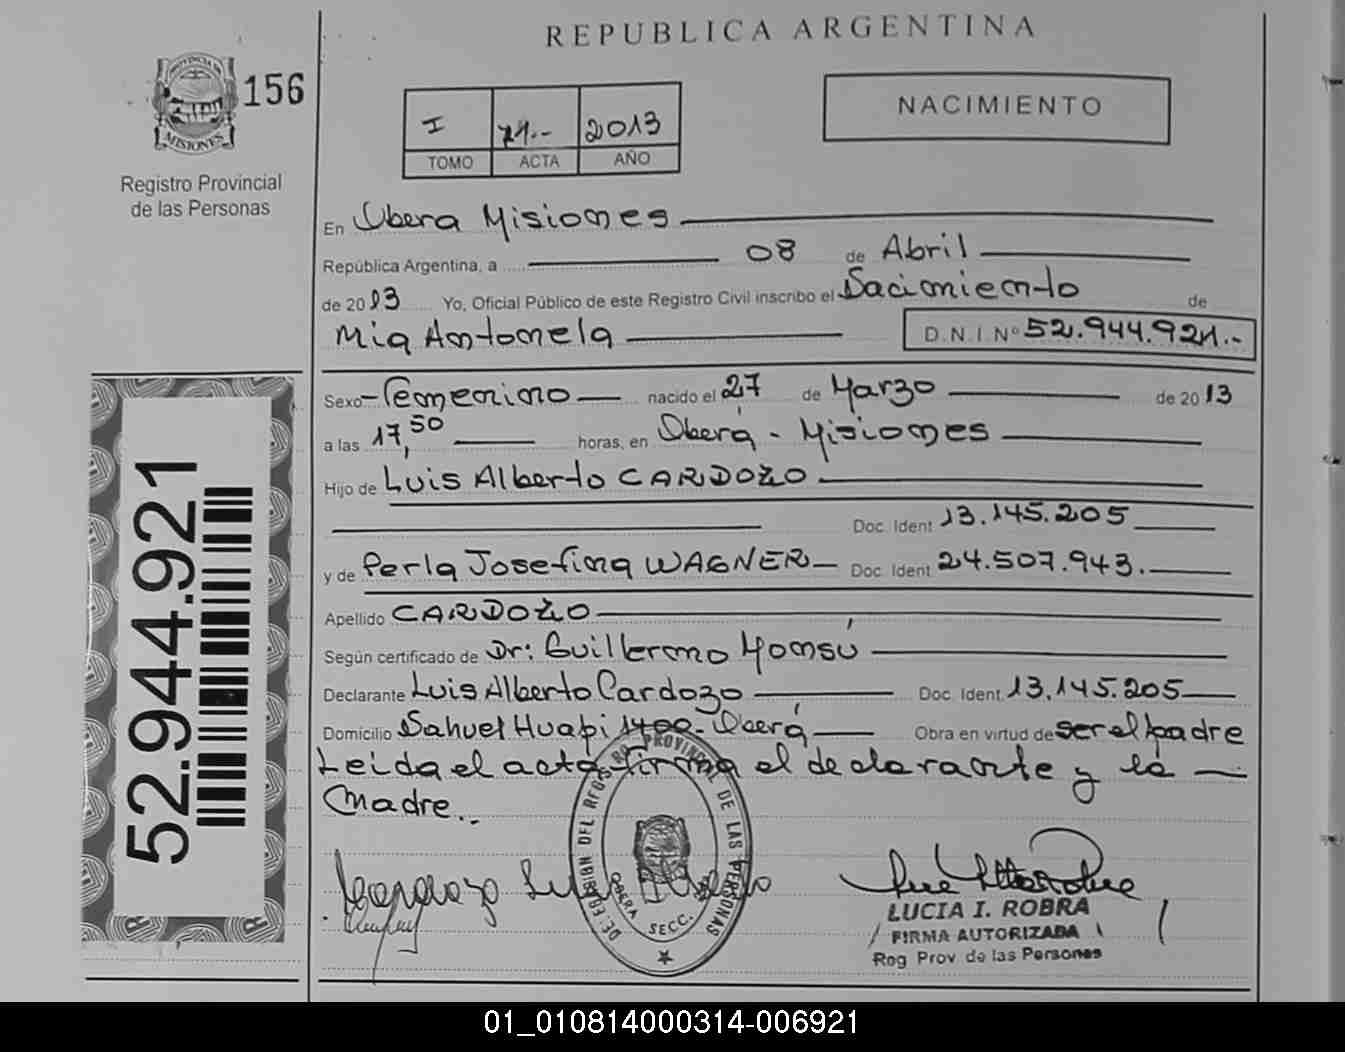 REPUBLICA ARGENTINA
PROVINCIA DE
MISIONES
156
Registro Provincial
de las Personas
I 71.-- 2013
TOMO ACTA AÑO
NACIMIENTO
En Obera Misiones
República Argentina, a 08 de Abril
de 2013 Yo, Oficial Público de este Registro Civil inscribo el Nacimiento de
Mia Antonela D.N.I. Nº 52.944.921.-
Sexo Femenino nacido el 27 de Marzo de 2013
a las 17,50 horas, en Oberá - Misiones
Hijo de Luis Alberto CARDOZO
Doc. Ident 13.145.205
y de Perla Josefina WAGNER Doc. Ident 24.507.943.
Apellido CARDOZO
Según certificado de Dr: Guillermo Monsú
Declarante Luis Alberto Cardozo Doc. Ident. 13.145.205
Domicilio Nahuel Huapi 1400- Oberá Obra en virtud de ser el padre
Leida el acta firma el declarante y la
Madre..
Cardozo Luis Alberto
DEL REGISTRO PROVINCIAL DE LAS PERSONAS
OBERA SECC.
LUCIA I. ROBRA
FIRMA AUTORIZADA
Reg Prov de las Personas
52.944.921
01_010814000314-006921